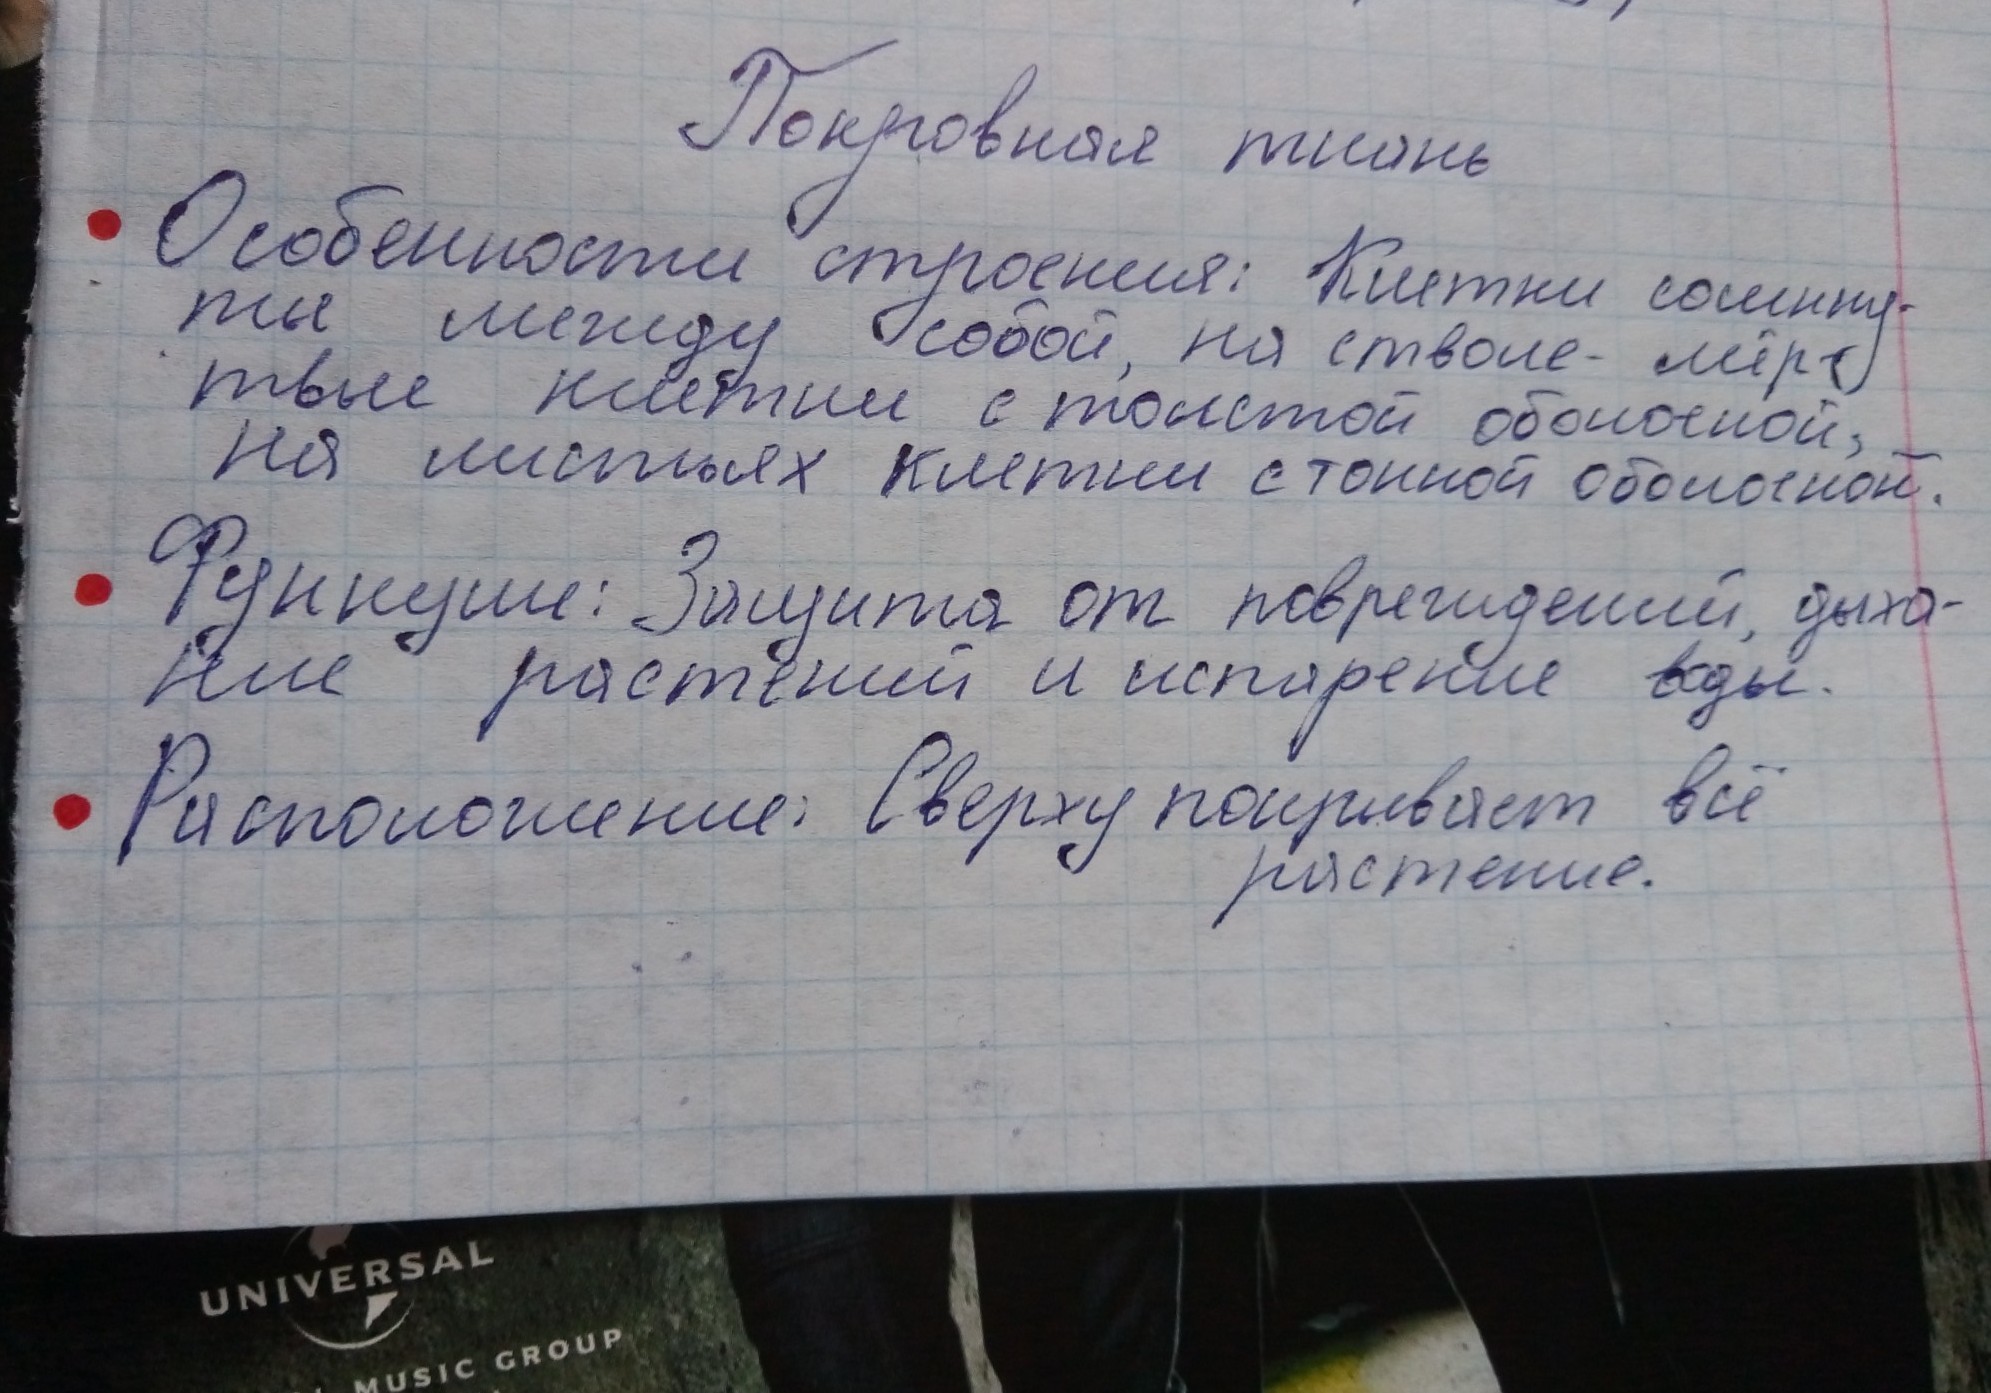 Покровная ткань
• Особенности строения: Клетки сомкну-
ты между собой, на стволе- мёр
твые клетки с толстой оболочкой,
на листьях клетки с тонкой оболочкой.
• Функции: Защита от повреждений, дыха-
ние растений и испарение воды.
• Расположение: Сверху покрывает всё
растение.
UNIVERSAL
MUSIC GROUP